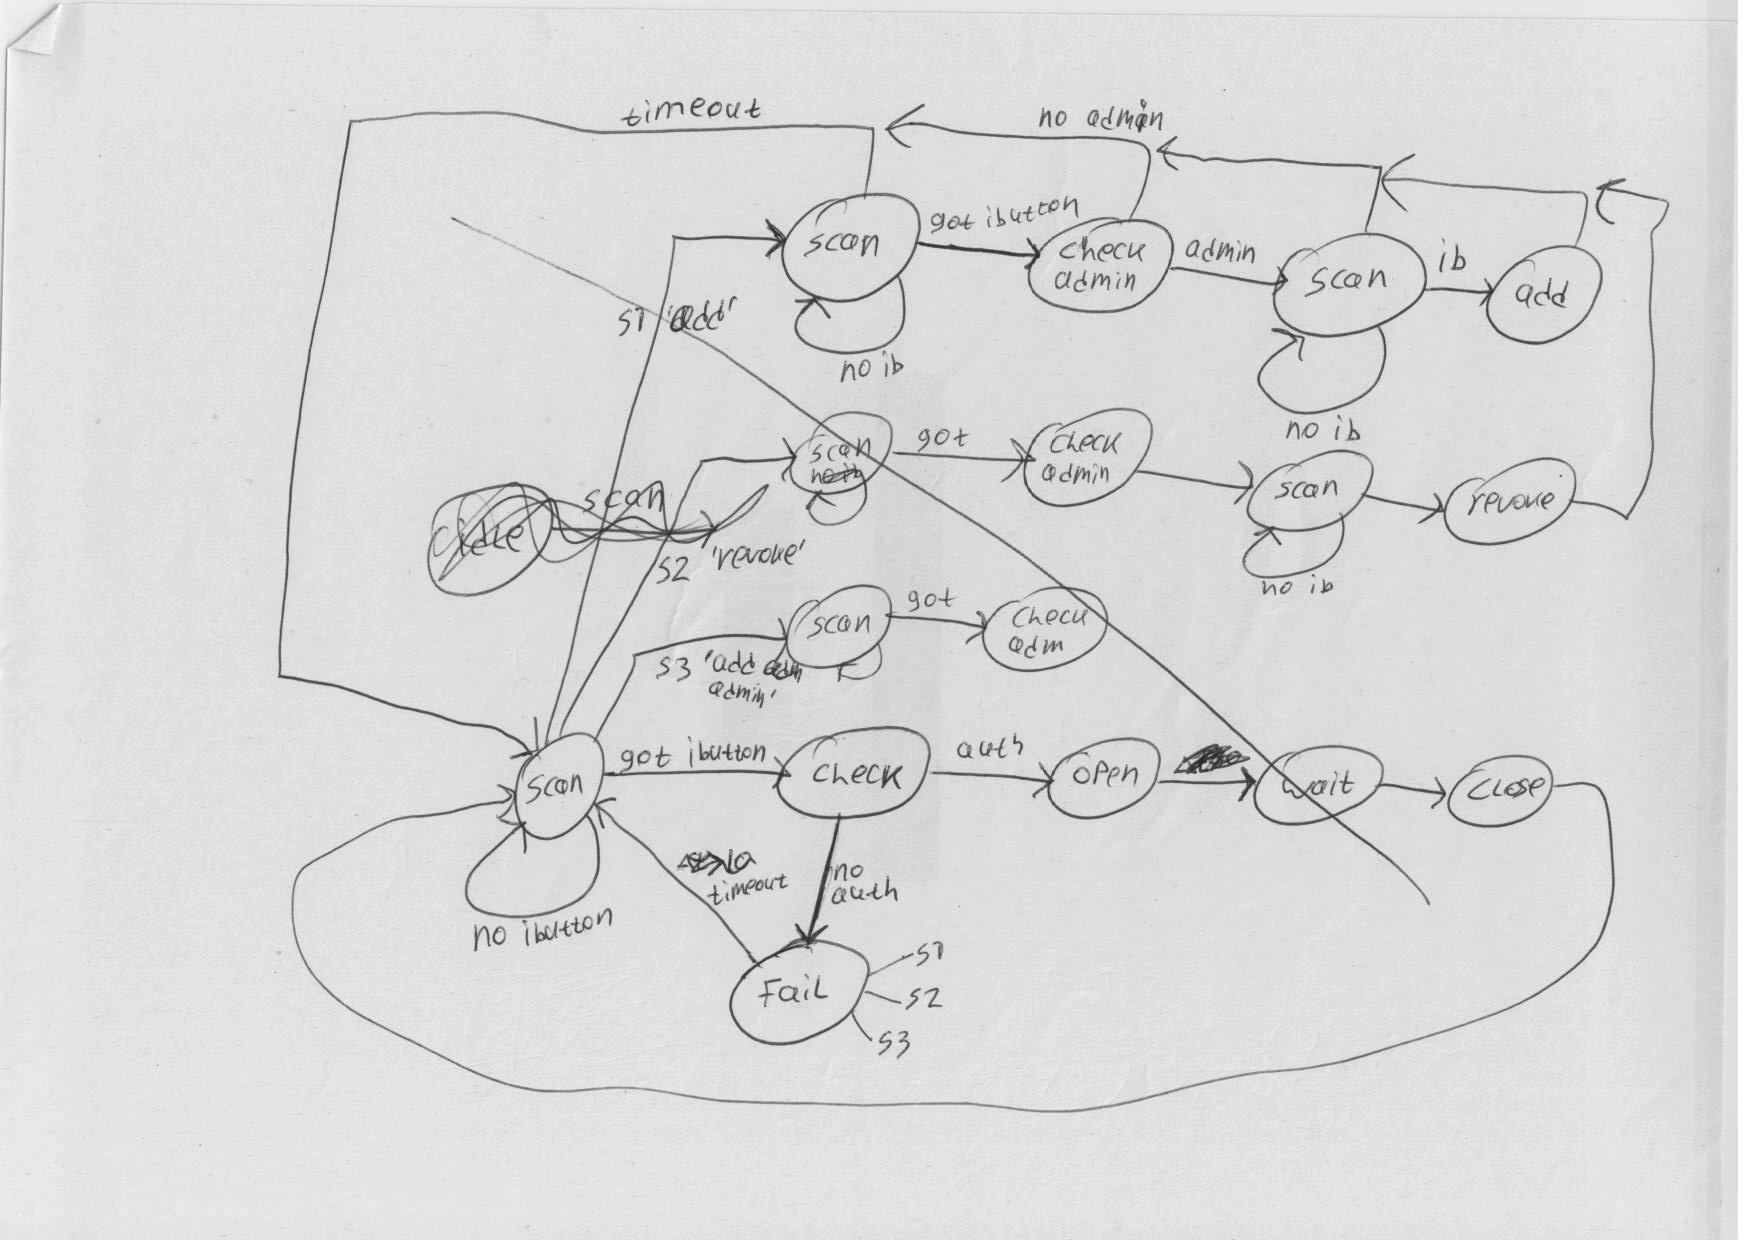 timeout
no admin
scan
got ibutton
check
admin
admin
scan
ib
add
S1 'add'
no ib
no ib
scan
got
check
admin
scan
revoke
idle
scan
S2 'revoke'
no ib
scan
got
check
adm
S3 'add adm
admin'
scan
got ibutton
check
auth
open
wait
close
timeout
no
auth
no ibutton
Fail
S1
S2
S3